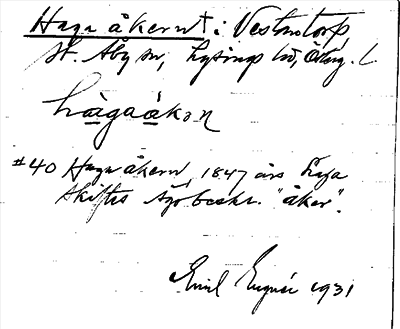 Haga åkern † i Vestantorp,
St. Åby sn, Lysings hd, Östg. L.
hàgaåkon
#40 Haga åkern, 1847 års Laga
skiftes ägobeskr. "åker".
Emil 1931